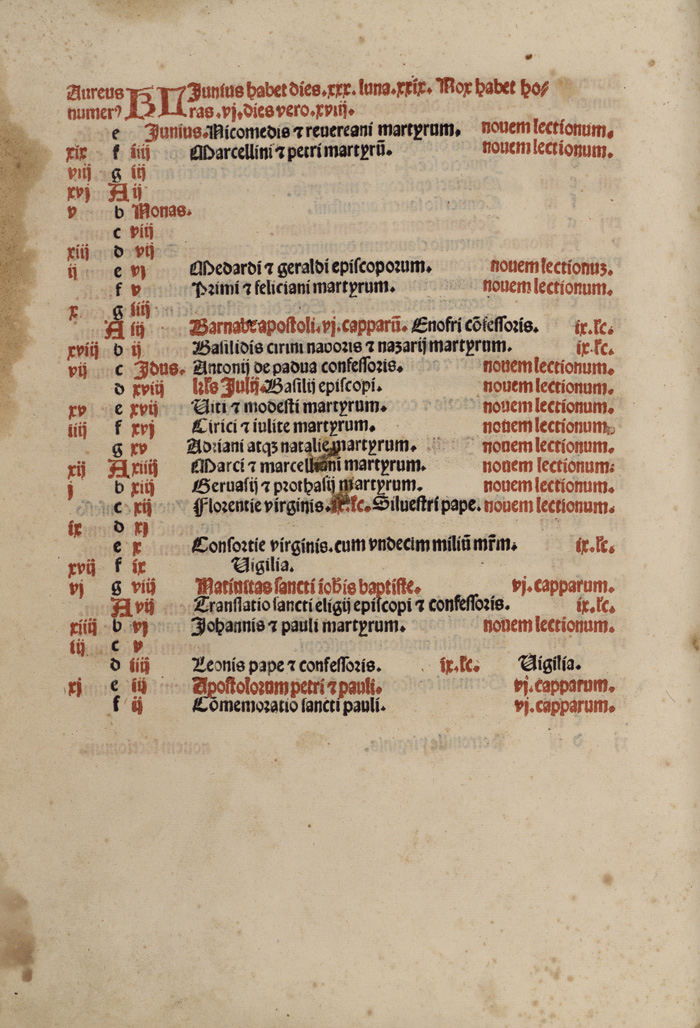 Aureus KL Junius habet dies .xxx. luna .xxix. Nox habet ho/
numerꝰ ras .vj. dies vero .xviij.
e Junius. Nicomedis ⁊ reuereani martyrum. nouem lectionum.
xix f iiij Marcellini ⁊ petri martyrū. nouem lectionum.
viij g iij
xvj A ij
v b Nonas.
c viij
xiij d vij
ij e vj Medardi ⁊ geraldi episcoporum. nouem lectionuʒ.
f v Primi ⁊ feliciani martyrum. nouem lectionum.
x g iiij
A iij Barnabe apostoli .vj. capparū. Enofri cōfessoris. ix. lc.
xviij b ij Basilidis cirini naboris ⁊ nazarij martyrum. ix. lc.
vij c Jdus. Antonij de padua confessoris. nouem lectionum.
d xviij kls Julij. Basilij episcopi. nouem lectionum.
xv e xvij Uiti ⁊ modesti martyrum. nouem lectionum.
iiij f xvj Cirici ⁊ iulite martyrum. nouem lectionum.
g xv Adriani atqʒ natalie martyrum. nouem lectionum.
xij A xiiij Marci ⁊ marcelliani martyrum. nouem lectionum.
j b xiij Geruasij ⁊ prothasij martyrum. nouem lectionum.
c xij Florentie virginis. ix. lc. Siluestri pape. nouem lectionum.
ix d xj
e x Consortie virginis. cum vndecim miliū mr̄m. ix. lc.
xvij f ix Uigilia.
vj g viij Natiuitas sancti ioh̄is baptiste. vj. capparum.
A vij Translatio sancti eligij episcopi ⁊ confessoris. ix. lc.
xiiij b vj Johannis ⁊ pauli martyrum. nouem lectionum.
iij c v
d iiij Leonis pape ⁊ confessoris. ix. lc. Uigilia.
xj e iij Apostolorum petri ⁊ pauli. vj. capparum.
f ij Cōmemoratio sancti pauli. vj. capparum.